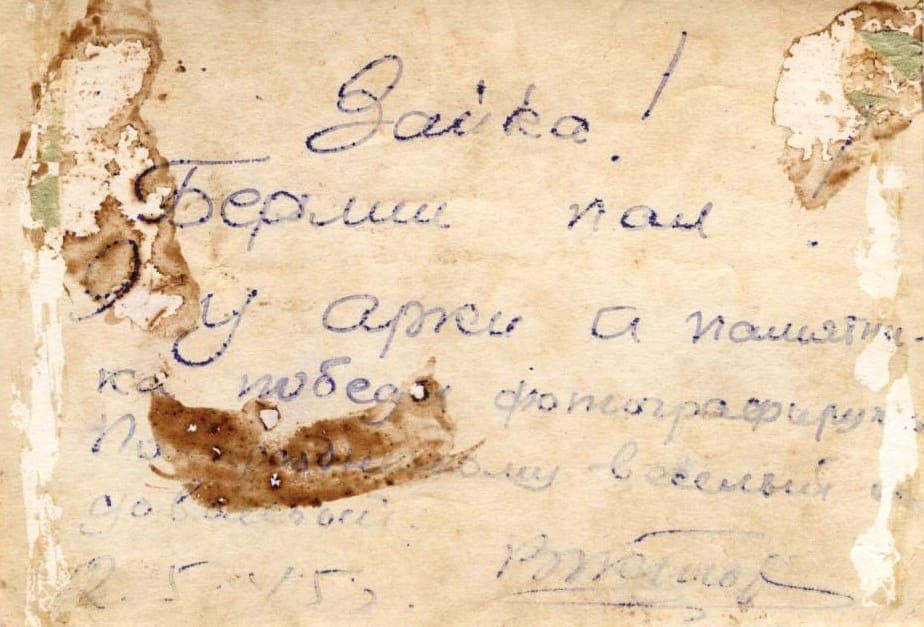 Зайка!
Берлин пал.
У арки и памятни-
ка победы фотографирую.
По-праздничному веселый и
довольный.
2.5.45г.